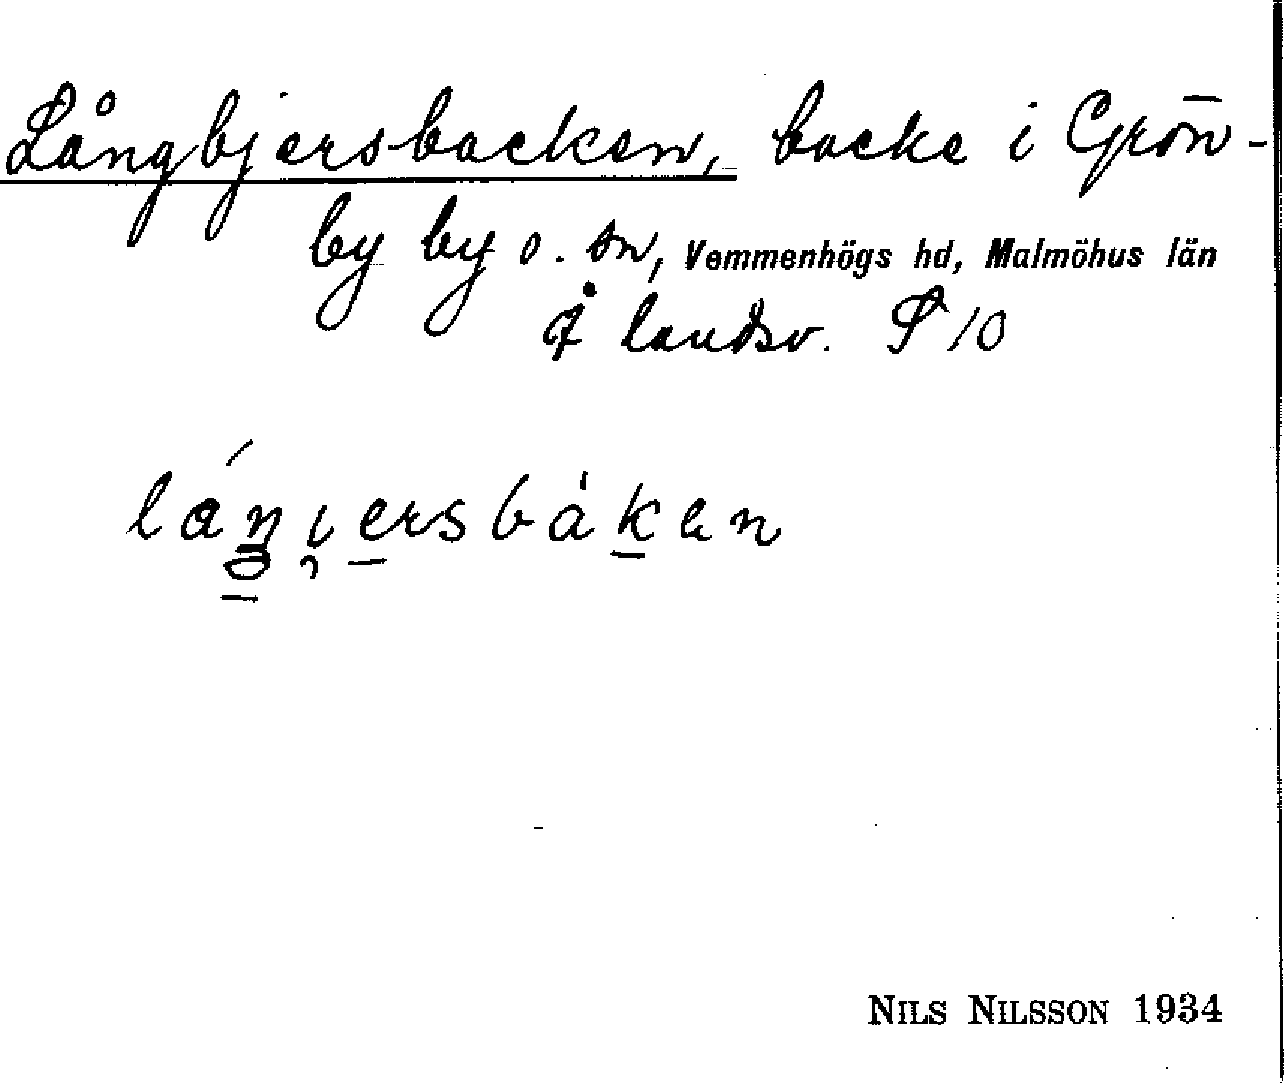 Långbjersbacken, backe i Grön-
by by o. sn, Vemmenhögs hd, Malmöhus län
Å landsv. S 10
láŋi̯ersbàken
NILS NILSSON 1934